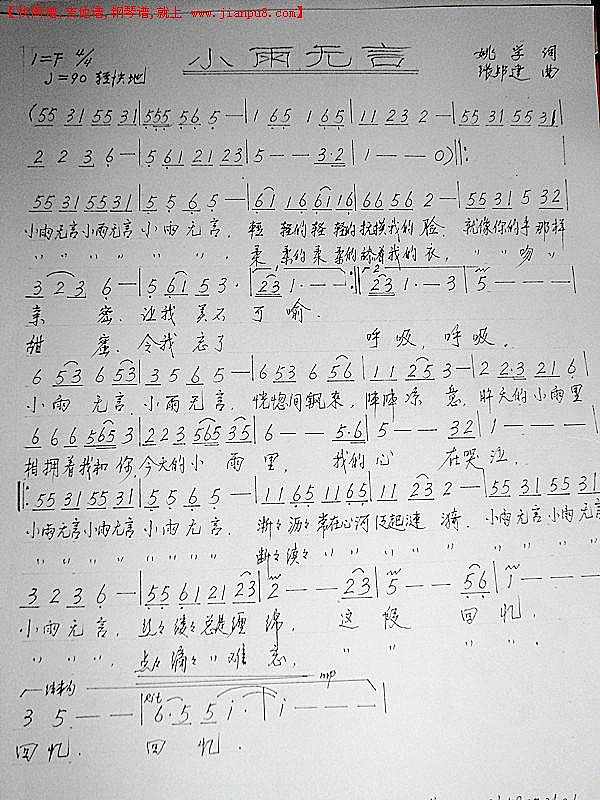 【找歌谱,吉他谱,钢琴谱,就上 www.jianpu8.com】
小雨无言
1=F 4/4
♩=90 轻快地
姚学 词
张邦建 曲
(55 31 55 31 | 555 56 5 — | 1 65 1 65 | 11 23 2 — | 55 31 55 31 |
2 2 3 6 — | 5 61 21 23 | 5 — — 3·2 | 1 — — 0):‖
55 31 55 31 | 5 5 6 5 — | 61 16 61 16 | 66 56 2 — | 55 31 5 32 |
小雨无言小雨无言 小雨无言. 轻轻的轻轻的抚摸我的脸. 就像你的手那样
〃〃〃〃〃〃〃〃〃〃〃〃, 柔柔的柔柔的 我的衣, 〃〃吻〃
3 2 3 6 — | 5 61 5 3· | 23 1 · — :‖ 23 1 · — 3 | 5 — — — |
亲密. 让我美不可喻.
甜蜜. 令我忘了 呼吸, 呼吸.
6 53 6 53 | 3 5 6 5 — | 6 53 6 56 | 11 2 5 3 — | 2 2·3 21 6 |
小雨无言, 小雨无言. 恍惚间飘来, 阵阵凉意. 昨天的小雨里
6 6 6 565 3 | 2 2 3 565 35 | 6 — — 5·6 | 5 — — 32 | 1 — — — |
相拥着我和你, 今天的小雨里, 我的心在哭泣.
‖: 55 31 55 31 | 5 5 6 5 — | 11 65 11 65 | 11 23 2 — | 55 31 55 31 |
小雨无言小雨无言 小雨无言. 淅々沥々常在心河泛起涟漪. 小雨无言小雨无言
〃〃〃〃〃〃〃〃〃〃〃〃. 断々续々〃〃〃〃〃〃〃〃. 〃〃〃〃〃〃〃〃
3 2 3 6 — | 55 61 21 23 | 2 — — 23 | 5 — — 56 | 1 — — — |
小雨无言, 丝々缕々总是缠绵. 这段回忆.
〃〃〃〃, 点々滴々〃难忘, 〃〃〃〃.
结束句 mp
3 5 — — | 6·5 5 i· | i — — — ‖
rit
回忆. 回忆.